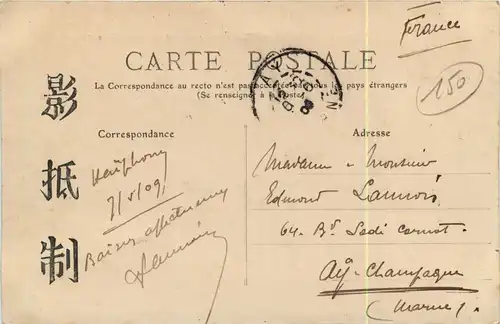 France
CARTE POSTALE
150
La Correspondance au recto n'est pas acceptée de tous les pays étrangers
(Se renseigner à la Poste)
影
抵
制
Correspondance
Adresse
Haïphong
7/5/09
Baisers affectueux
Madame & Monsieur
Edmond Lannois
64. Bd Sadi Carnot.
Aÿ-Champagne
(Marne).